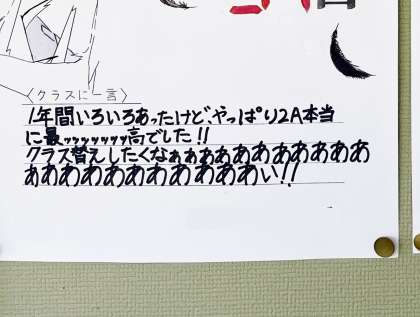 〈クラスに一言〉
1年間いろいろあったけど、やっぱり2A本当
に最ッッッッッッッ高でした!!
クラス替えしたくなぁぁああああああああああ
ぁああああああああああい!!